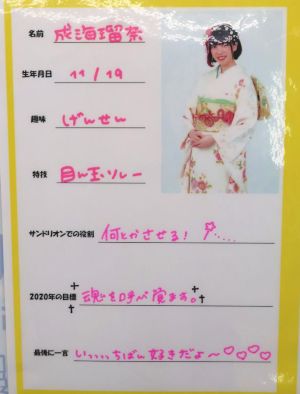 名前 成海瑠奈
生年月日 11/19
趣味 げんせん
特技 目ん玉ソムリー
サンドリオンでの役割 何とかさせる! ☆....
2020年の目標 魂を呼び覚ます。
最後に一言 いっっっちばん好きだよ〜♡♡♡♡